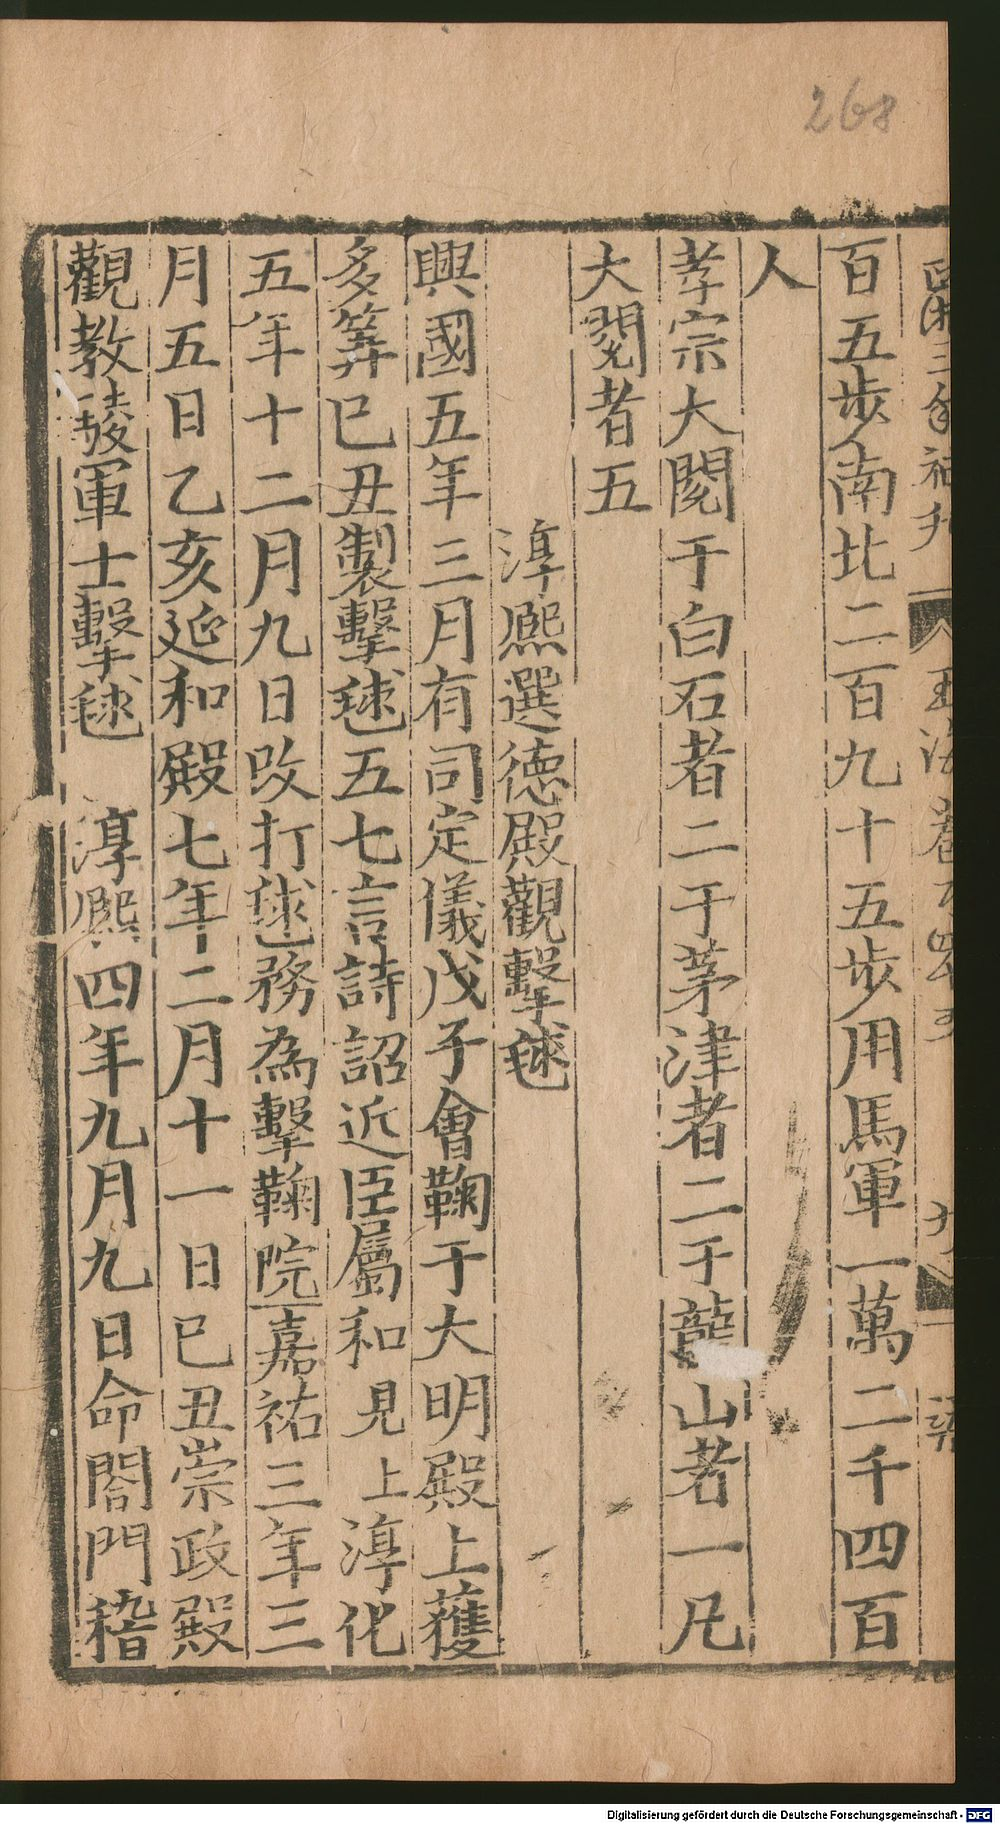 268
百五步南北二百九十五步用馬軍一萬二千四百
人
孝宗大閱于白石者二于茅津者二于龍山者一凡
大閱者五
淳熈選德殿觀擊毬
興國五年三月有司定儀戊子會鞠于大明殿上獲
多筭己丑製擊毬五七言詩詔近臣屬和見上淳化
五年十二月九日改打毬務為擊鞠院嘉祐三年三
月五日乙亥延和殿七年二月十一日己丑崇政殿
觀教駿軍士擊毬 淳熈四年九月九日命閤門稽
Digitalisierung gefördert durch die Deutsche Forschungsgemeinschaft - DFG